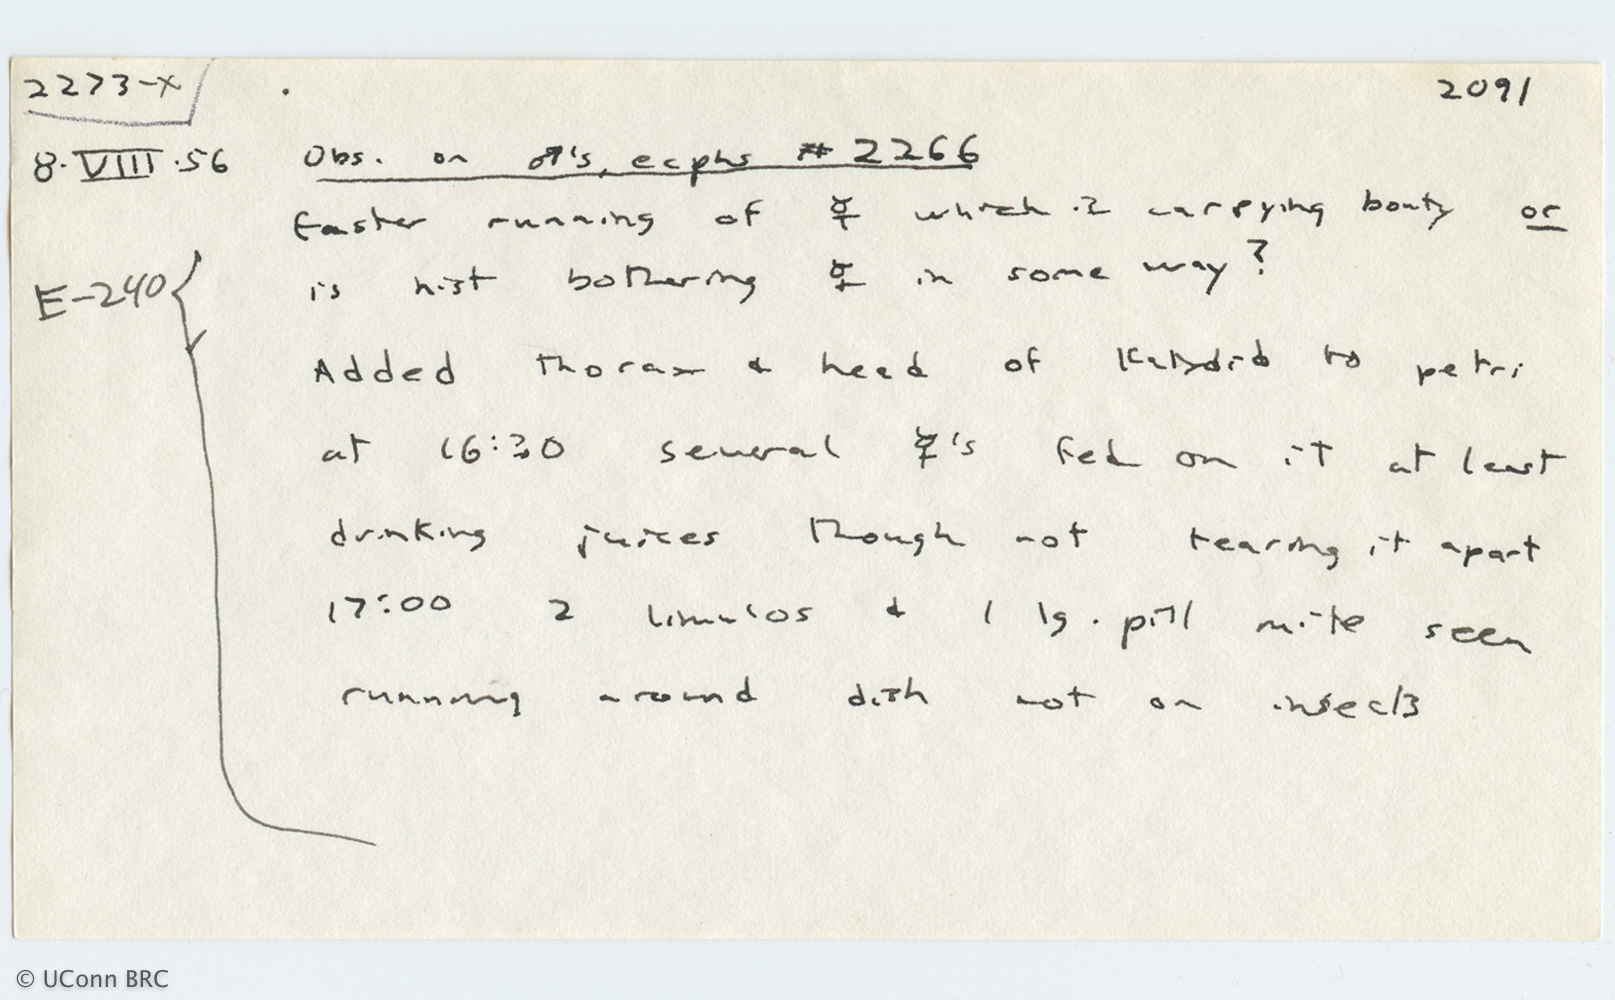 2273-X 2091
8.VIII.56 Obs. on ♂'s, ecphs # 2266
faster running of ☿ which is carrying booty or
is hist bothering ☿ in some way?
E-240
Added thorax & head of Katydid to petri
at 16:30 several ☿'s fed on it at least
drinking juices though not tearing it apart
17:00 2 limulos & 1 lg. pill mite seen
running around dish not on insects
© UConn BRC